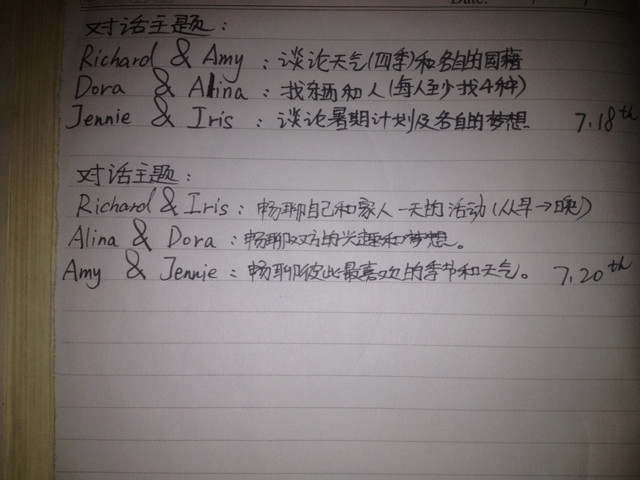 Date:
对话主题：
Richard & Amy：谈论天气(四季)和各自的国籍
Dora & Alina：找东西和人(每人至少找4种)
Jennie & Iris：谈论暑期计划及各自的梦想 7.18th
对话主题：
Richard & Iris：畅聊自己和家人一天的活动(从早→晚)
Alina & Dora：畅聊双方的兴趣和梦想。
Amy & Jennie：畅聊彼此最喜欢的季节和天气。 7.20th